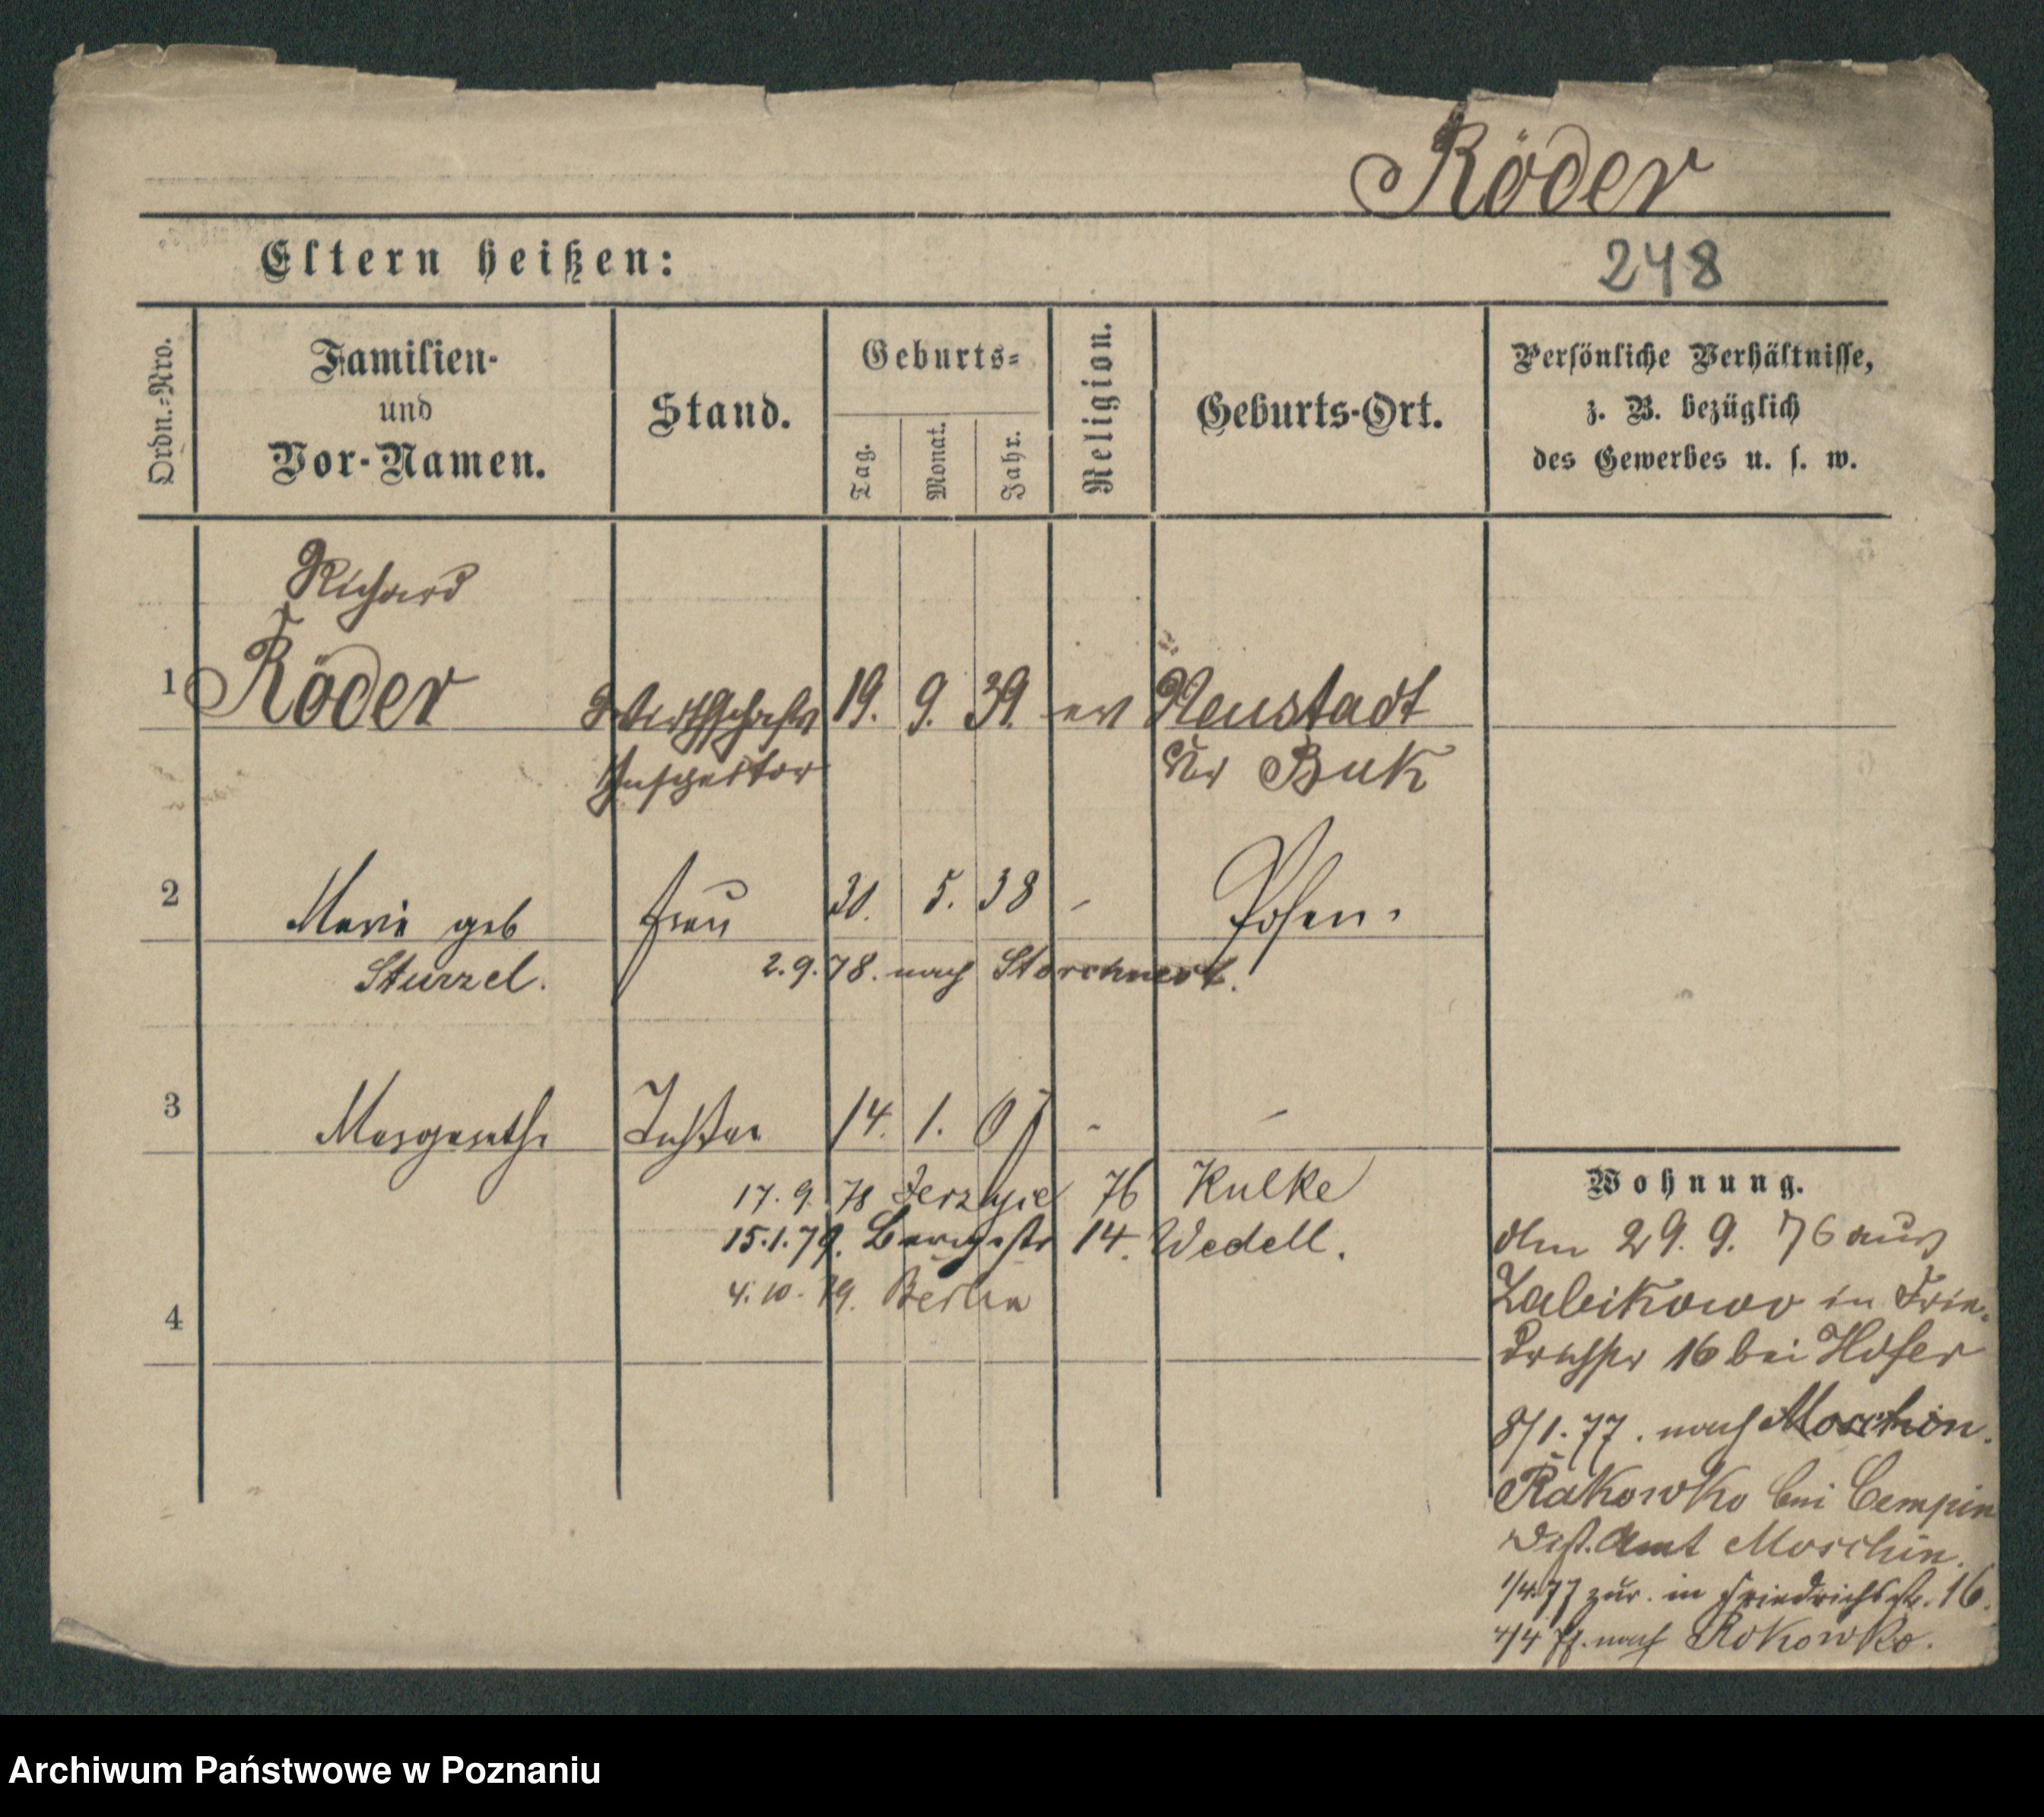 Röder
Eltern heißen:
248
Ordn.-Nro.
Familien-
und
Vor-Namen.
Stand.
Geburts-
Tag.
Monat.
Jahr.
Religion.
Geburts-Ort.
Persönliche Verhältnisse,
z. B. bezüglich
des Gewerbes u. s. w.
Richard
1 Röder Wirthschafts 19. 9. 39. ev Neustadt
Inspector Kr Buk
2 Marie geb Frau 30. 5. 38 - Posen.
Sturzel. 2.9.78. nach Storchnest.
3 Margarethe Tochter 14. 1. 67 - -
17. 9. 78 Jerzyce 76 Kulke
15.1.79. Bergstr 14. Wedell.
4. 10. 79. Berlin
4
Wohnung.
29. 9. 76 aus
Zabikowo in Frie-
drichstr 16 bei Hofer
8/1. 77. nach Moschin.
Rakowko bei Cempin
Dist. Amt Moschin.
1/4 77 zur. in Friedrichsstr. 16.
4/4 77. nach Rokowko.
Archiwum Państwowe w Poznaniu